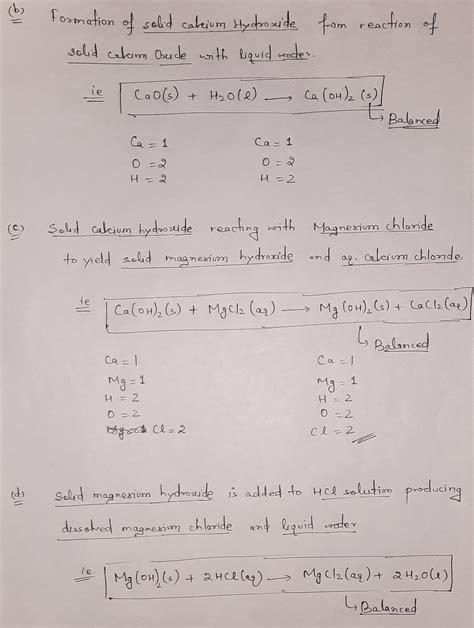 (b) Formation of solid calcium Hydroxide from reaction of
solid calcium Oxide with liquid water.
ie CaO(s) + H₂O(l) → Ca(OH)₂ (s)
Balanced
Ca = 1 Ca = 1
O = 2 O = 2
H = 2 H = 2
(c) Solid calcium hydroxide reacting with Magnesium chloride
to yield solid magnesium hydroxide and aq. calcium chloride.
ie Ca(OH)₂(s) + MgCl₂(aq) → Mg(OH)₂(s) + CaCl₂(aq)
Balanced
Ca = 1 Ca = 1
Mg = 1 Mg = 1
H = 2 H = 2
O = 2 O = 2
Cl = 2 Cl = 2
(d) Solid magnesium hydroxide is added to HCl solution producing
dissolved magnesium chloride and liquid water
ie. Mg(OH)₂(s) + 2HCl(aq) → MgCl₂(aq) + 2H₂O(l)
Balanced